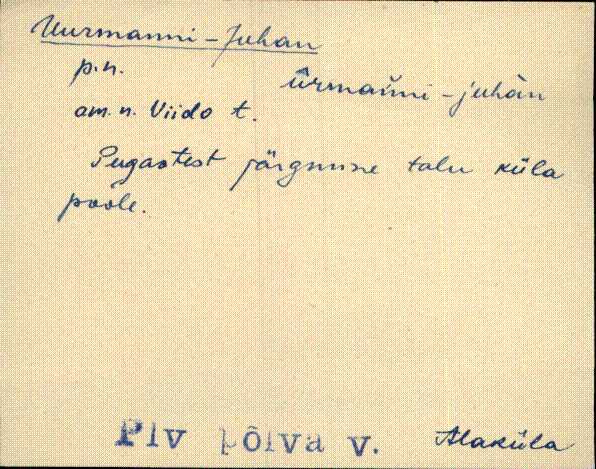 Uurmanni-Juhan
p.n. ũrmańni-juhàn
am.n. Viido t.
Pugastest järgmine talu küla
poole.
Plv põlva v. Alaküla